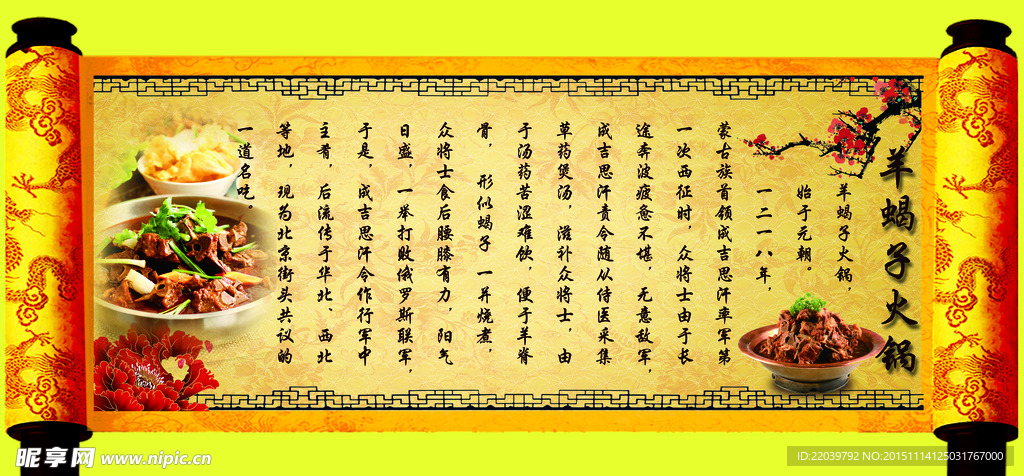 羊蝎子火锅
羊蝎子火锅，
始于元朝。
一二一八年，
蒙古族首领成吉思汗率军第
一次西征时，众将士由于长
途奔波疲惫不堪，无意敌军，
成吉思汗责令随从侍医采集
草药煲汤，滋补众将士，由
于汤药苦涩难饮，便于羊脊
骨，形似蝎子一并烧煮，
众将士食后腰膝有力，阳气
日盛，一举打败俄罗斯联军，
于是，成吉思汗令作行军中
主肴，后流传于华北、西北
等地，现为北京街头共议的
一道名吃。
昵享网 www.nipic.cn
ID:22039792 NO:20151114125031767000